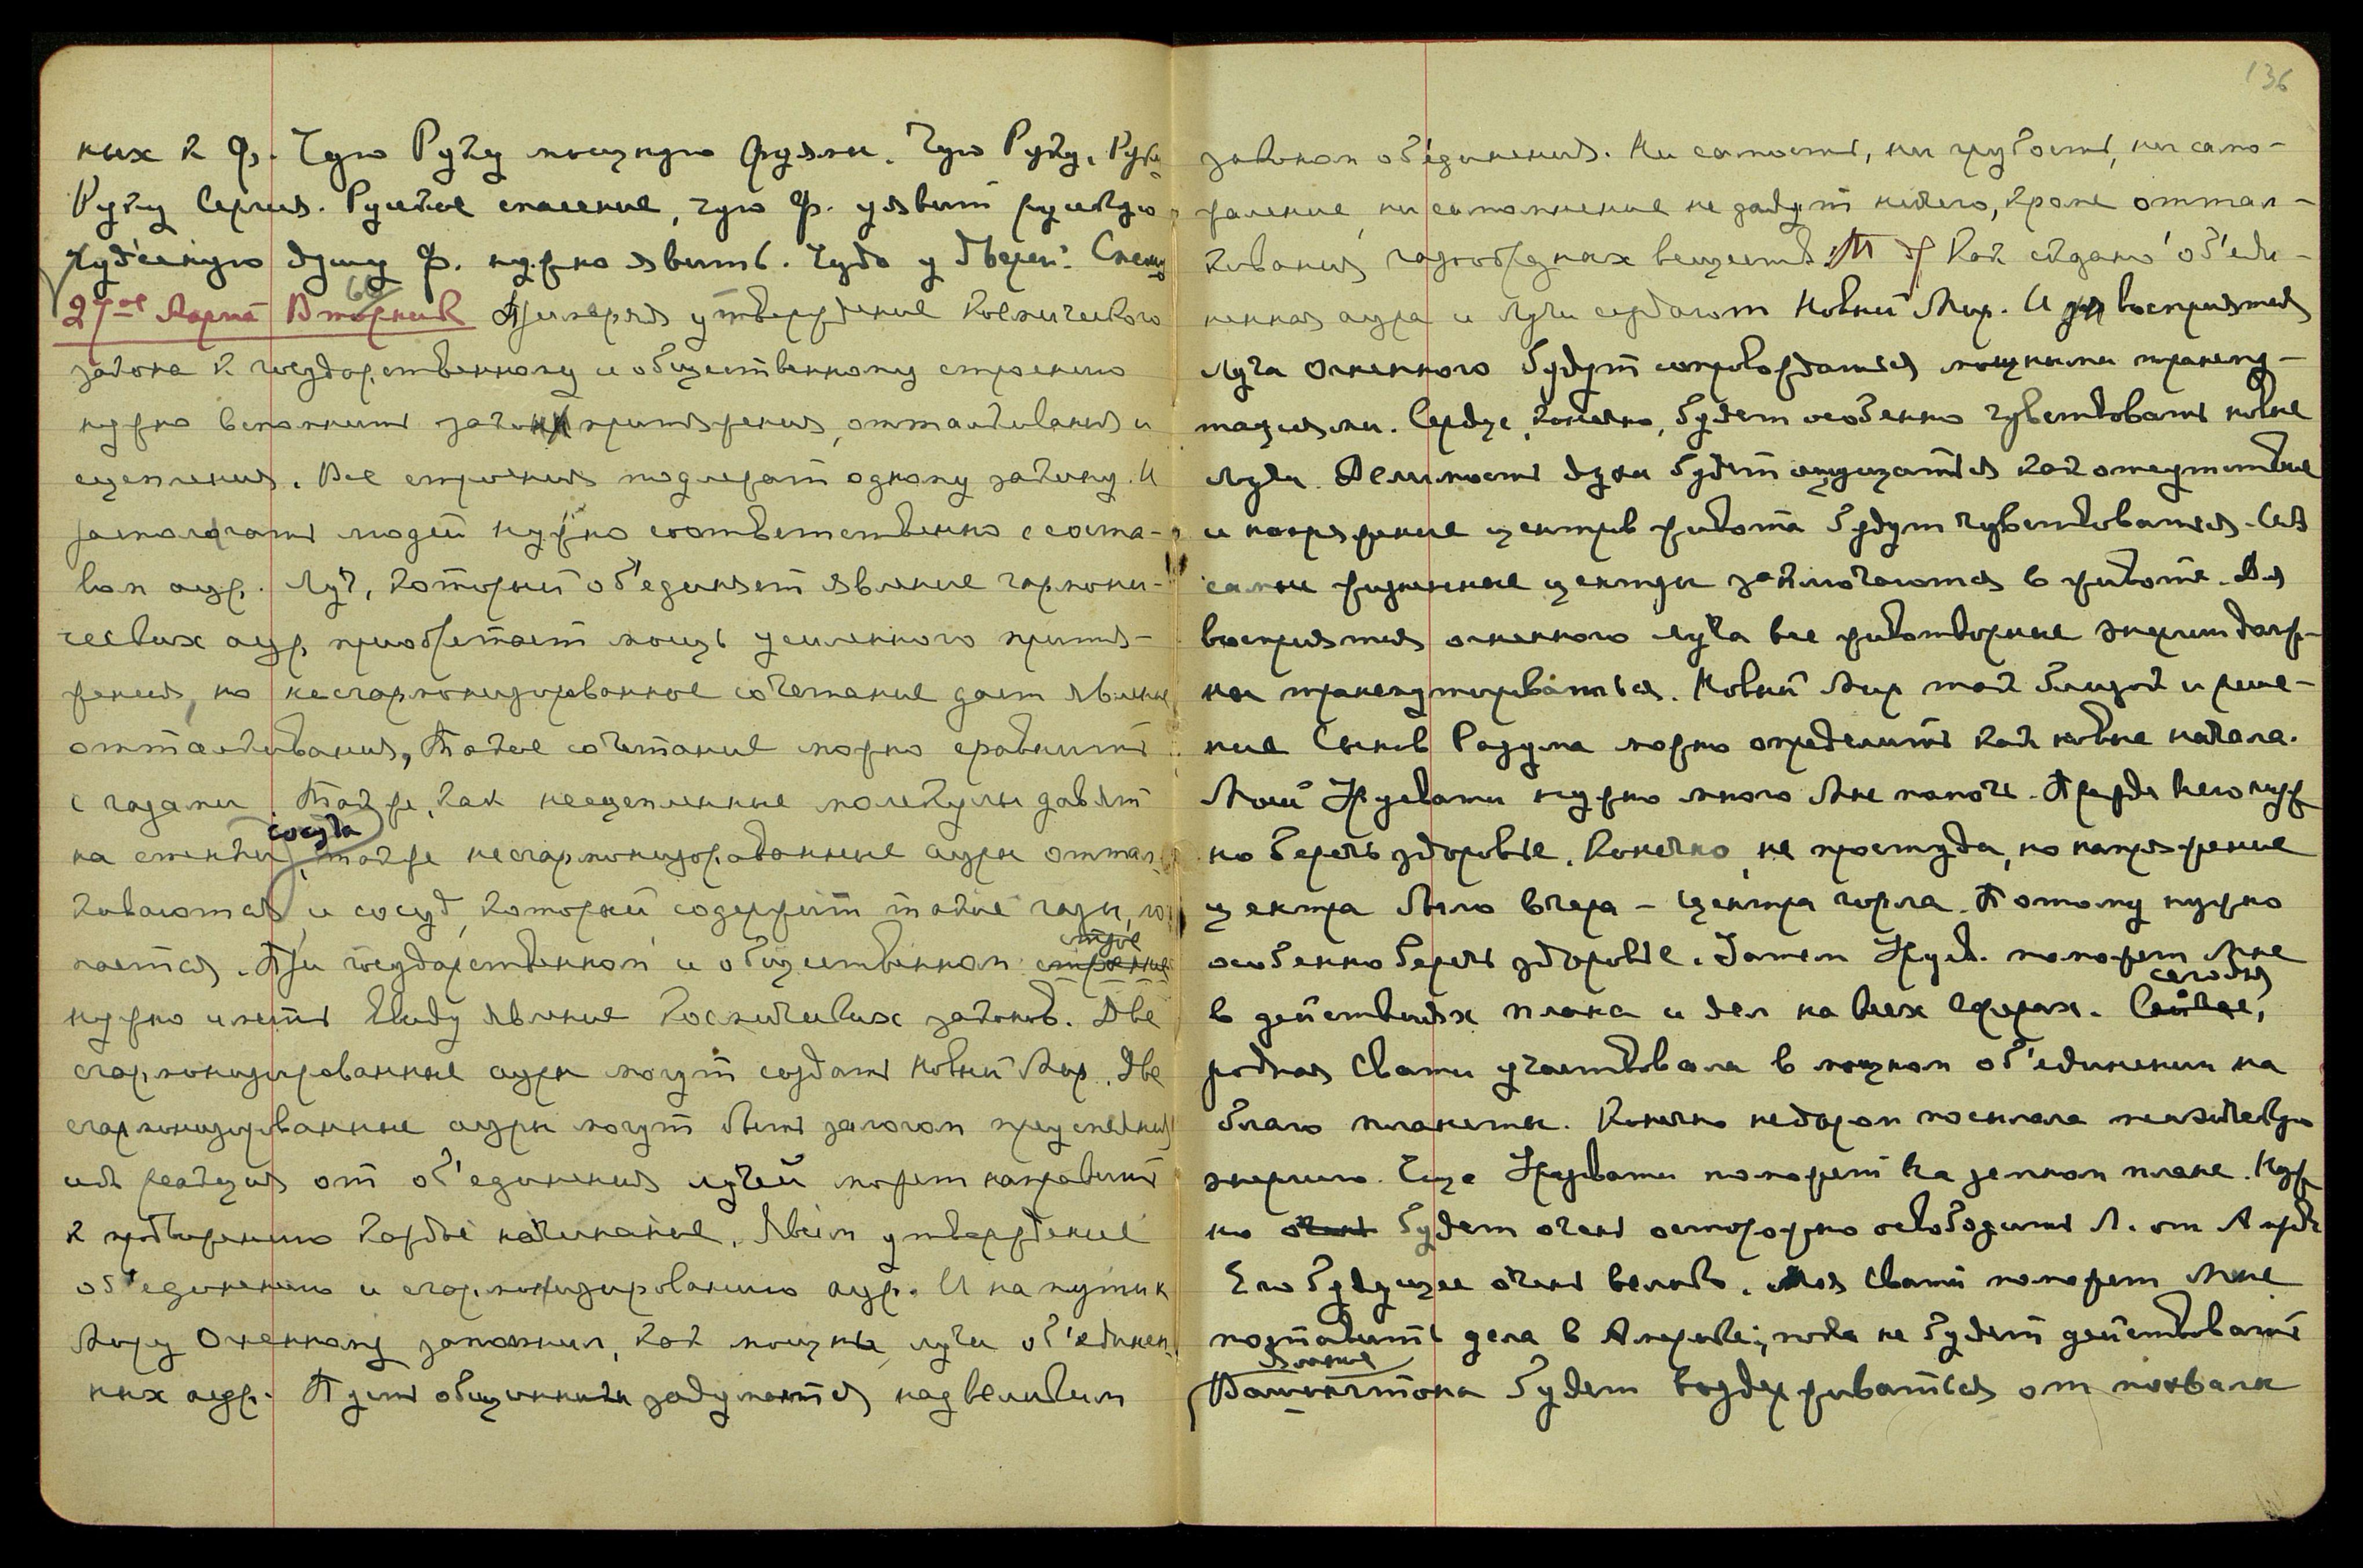 ных к Ф. Чую Руку мощную друзьям. Чую Руку, Руку
Руку Сергия. Русское спасение, чую Ф. уявит русскую
Чудесную душу Ф. нужно явить. Чудо у дверей. Спешу
60
27-ое Марта Вторник Примеряя утверждение Космического
закона к государственному и общественному строению
нужно вспомнить закон притяжения, отталкивания и
сцепления. Все строения подлежат одному закону. И
располагать людей нужно соответственно с соста-
вом аур. Луч, который об'единяет явление гармони-
ческих аур, приобретает мощь усиленного притя-
жения, но несгармонизированное сочетание дает явление
отталкивания, Такое сочетание можно сравнить
с газами. Так же, как несцепленные молекулы давят
сосуда
на стенки, также несгармонизированные ауры оттал-
киваются, и сосуд, который содержит такие газы,
мается. При государственном и общественном строение
строе
нужно иметь ввиду явление Космических законов. Две
сгармонизированные ауры могут создать Новый Мир. Две
сгармонизированные ауры могут быть залогом преуспеяния
ибо реакция от об'единения лучей может направить
к претворению каждое начинание. Явим утверждение
об'единению и сгармонизированию аур. И на пути к
Миру Огненному запомним, как мощны лучи об'единен-
ных аур. Пусть общинники задумаются над великим
136
законом об'единения. Ни самость, ни грубость, ни само-
жаление, ни самомнение не дадут ничего, кроме оттал-
кивания газообразных веществ. Так созданы об'еди-
ненная аура и Лучи создают Новый Мир. И восприятия
Луча Огненного будут сопровождаться мощными трансму-
тациями. Сердце, конечно, будет особенно чувствовать новые
Лучи. Делимость духа будет ощущаться как отсутствие
и напряжение центров живота будут чувствоваться. Ибо
самые жизненные центры заключаются в животе. Для
восприятия огненного луча все животворные энергии долж-
ны трансмутироваться. Новый Мир так близок и реше-
ние Сынов Разума можно определить как новые начала.
Моей Урусвати нужно много Мне помочь. Прежде всего нуж
но беречь здоровье. Конечно, не простуда, но напряжение
центра было вчера - центра горла. Потому нужно
особенно беречь здоровье. Затем Урусв. поможет Мне
сегодня
в действиях плана и дел на всех сферах. Сейчас,
родная Свати участвовала в мощном об'единении на
благо планеты. Конечно недаром посылала психическую
энергию. Еще Урусвати поможет На земном плане. Нуж
но очень будет очень осторожно освободить Л. от
Его будущее очень велико. Моя Свати поможет Мне
поставить дела в Америке; пока не будет действовать
Влияние
Вашингтона будет воздерживаться от похвалы